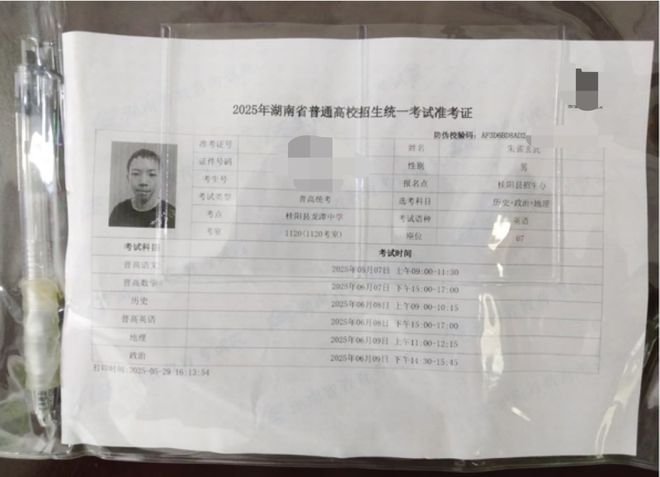 2025年湖南省普通高校招生统一考试准考证
防伪校验码: AF3D6BD8AD2
准考证号 姓名
证件号码 性别 男
考生号 报名点 桂阳县招生办
考试类型 普高统考 选考科目 历史+政治+地理
考点 桂阳县龙潭中学 考试语种 英语
考室 1120(1120考室) 座位 07
考试科目 考试时间
普高语文 2025年06月07日 上午09:00-11:30
普高数学 2025年06月07日 下午15:00-17:00
历史 2025年06月08日 上午09:00-10:15
普高英语 2025年06月08日 下午15:00-17:00
地理 2025年06月09日 上午11:00-12:15
政治 2025年06月09日 下午14:30-15:45
打印时间:2025-05-29 16:13:54